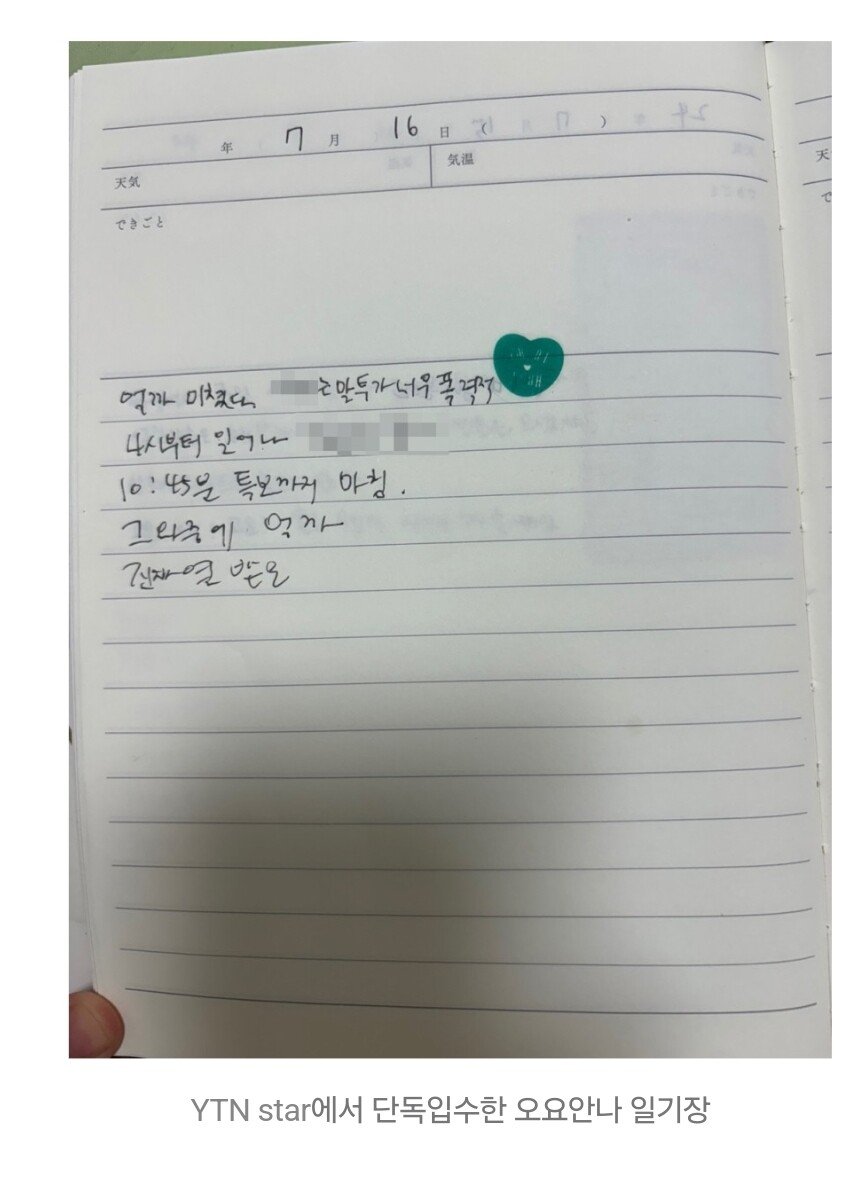 年 7 月 16 日 ( )
天気 気温
できごと
억까 미쳤다, 는 말투가 너무 폭력적
4시부터 일어나
10:45분 특보까지 마침.
그 와중에 억까
진짜 열 받음
YTN star에서 단독입수한 오요안나 일기장